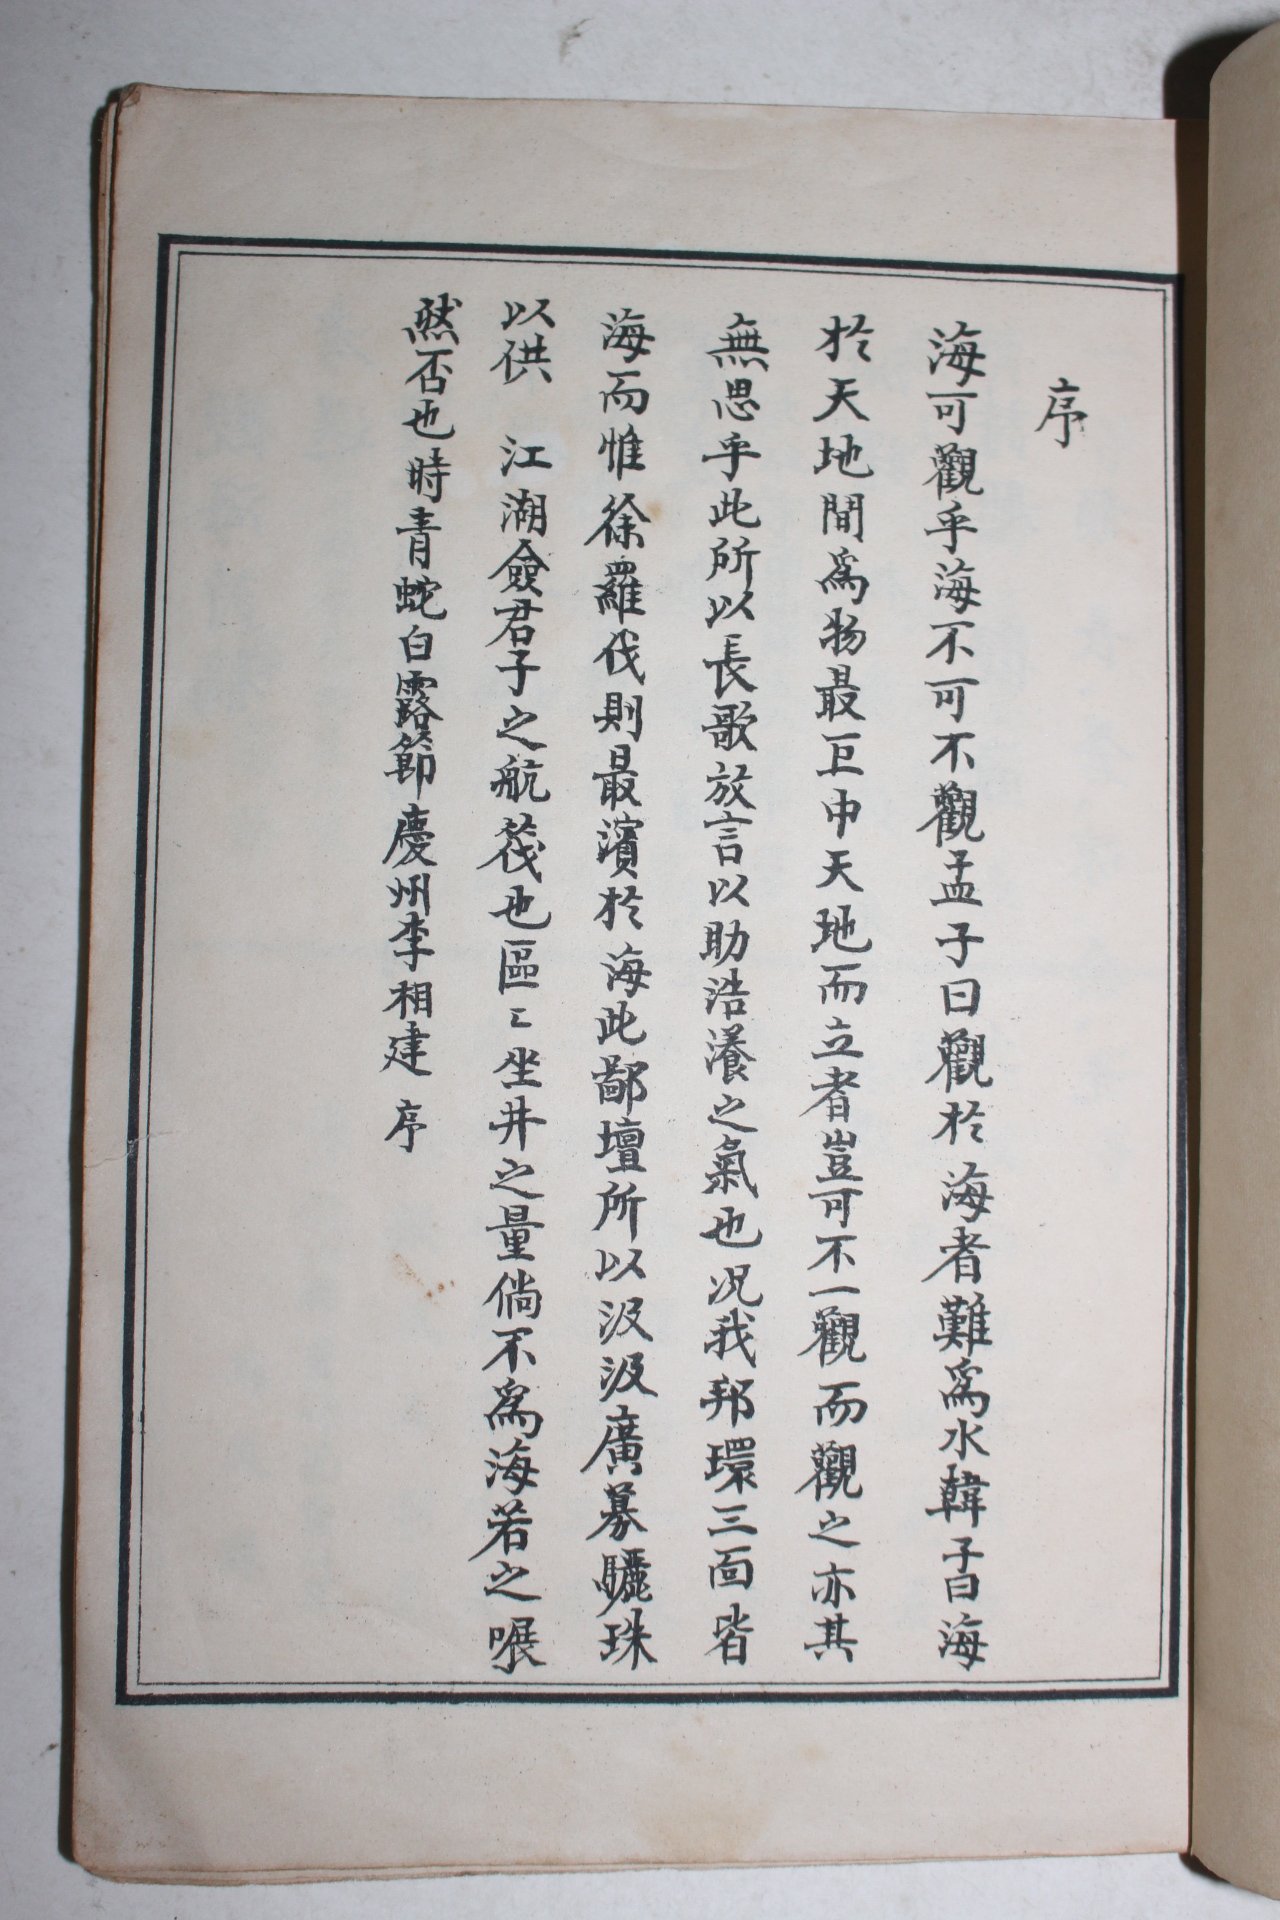 序
海可觀乎海不可不觀孟子曰觀於海者難爲水韓子曰海
於天地間爲物最巨申天地而立者豈可不一觀而觀之亦其
無思乎此所以長歌放言以助浩瀁之氣也况我邦環三面皆
海而惟徐羅伐則最濱於海此鄙壇所以汲汲廣募驪珠
以供 江湖僉君子之航筏也區〻坐井之量倘不爲海若之㖶
然否也時青蛇白露節慶州李相建 序